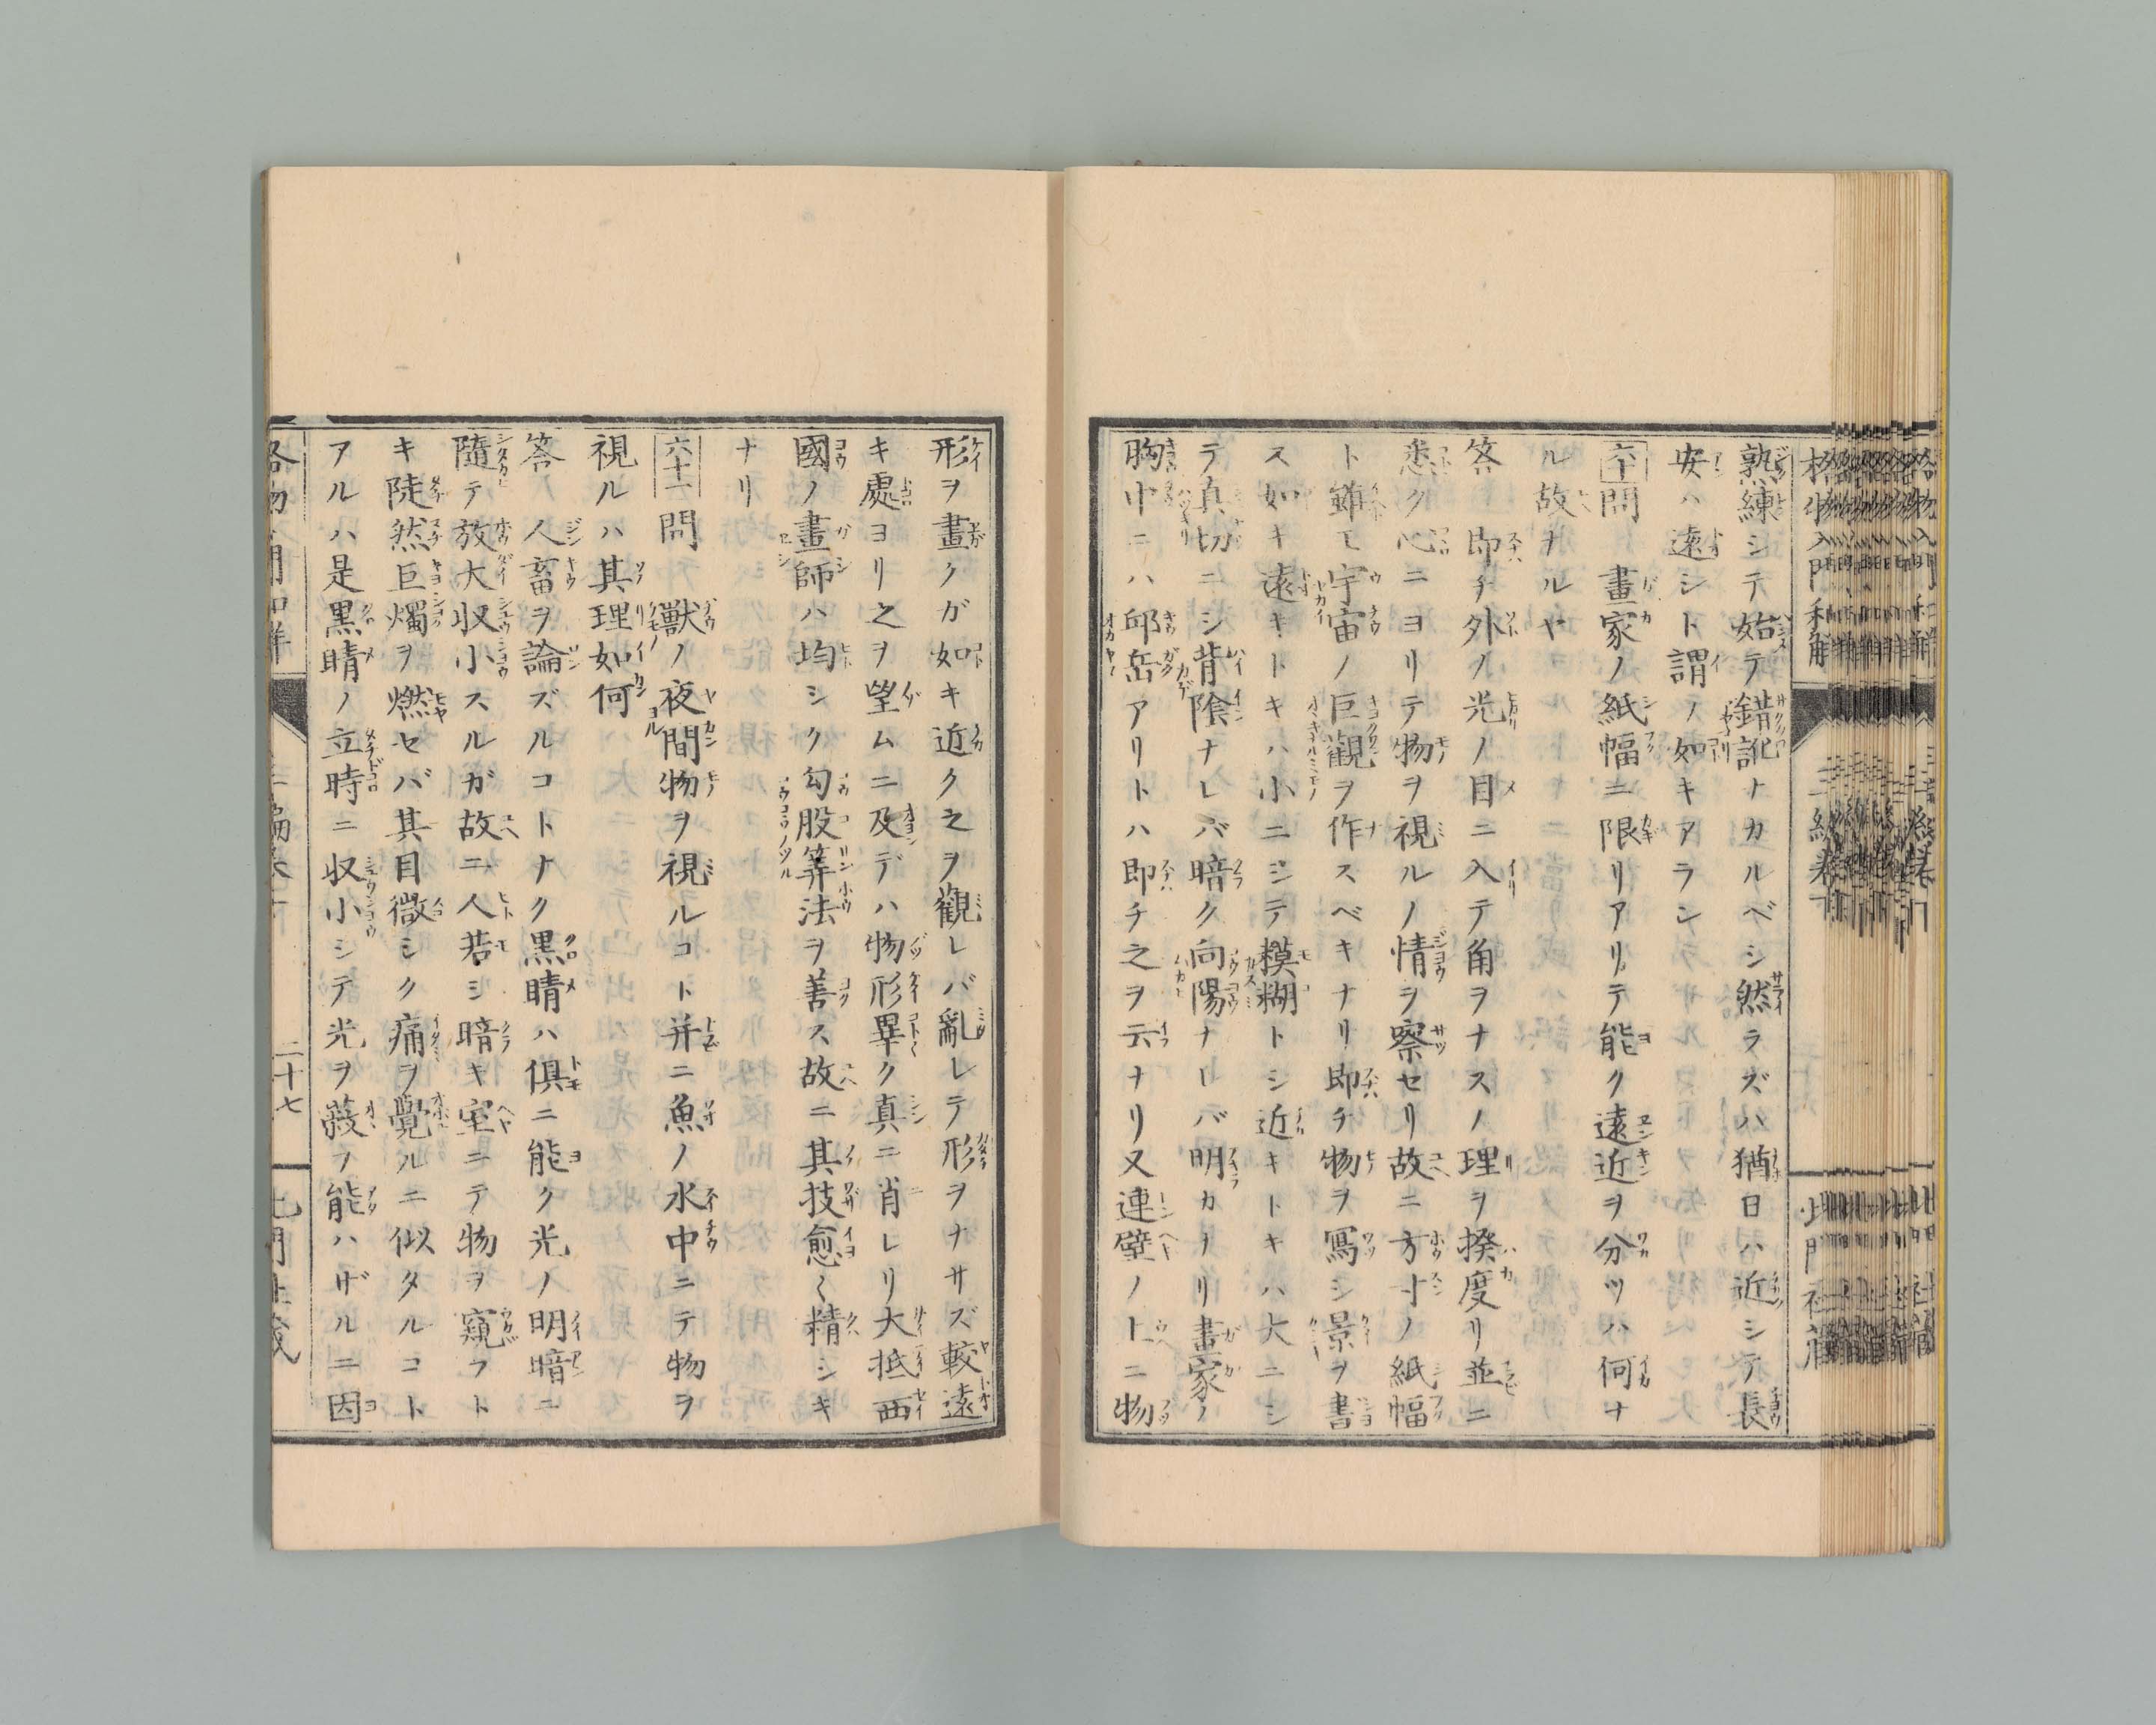 熟練シテ始テ錯訛ナカルベシ然ラズハ猶日ハ近シテ長
安ハ遠シト謂ノ如キアランノミ
六十問 畫家ノ紙幅ニ限リアリテ能ク遠近ヲ分ツハ何ナ
ル故ナルヤ
答 即チ外ノ光ノ目ニ入テ角ヲナスノ理ヲ揆度リ並ニ
悉ク心ニヨリテ物ヲ視ルノ情ヲ察セリ故ニ方寸ノ紙幅
ト雖モ宇宙ノ巨觀ヲ作スベキナリ即チ物ヲ寫シ景ヲ書
ス如キ遠キトキハ小ニシテ糢糊トシ近キトキハ大ニシ
テ真切ニシ背陰ナレバ暗ク向陽ナレバ明カナリ畫家ノ
胸中ニハ邱岳アリトハ即チ之ヲ云ナリ又連壁ノ上ニ物
形ヲ畫クガ如キ近ク之ヲ觀レバ亂レテ形ヲナサズ較遠
キ處ヨリ之ヲ望ムニ及デハ物形畢ク真ニ肖レリ大抵西
國ノ畫師ハ均シク勾股筭法ヲ善ス故ニ其技愈〱精シキ
ナリ
六十一問 獸ノ夜間物ヲ視ルコト并ニ魚ノ水中ニテ物ヲ
視ルハ其理如何
答 人畜ヲ論ズルコトナク黒睛ハ俱ニ能ク光ノ明暗ニ
隨テ放大収小スルガ故ニ人若シ暗キ室ニテ物ヲ窺フト
キ陡然巨燭ヲ燃セバ其目微シク痛ヲ覺ルニ似タルコト
アルハ是黒睛ノ立時ニ収小シテ光ヲ蔽フ能ハザルニ因
格物入門和解 三編卷下 二十七 北門社藏